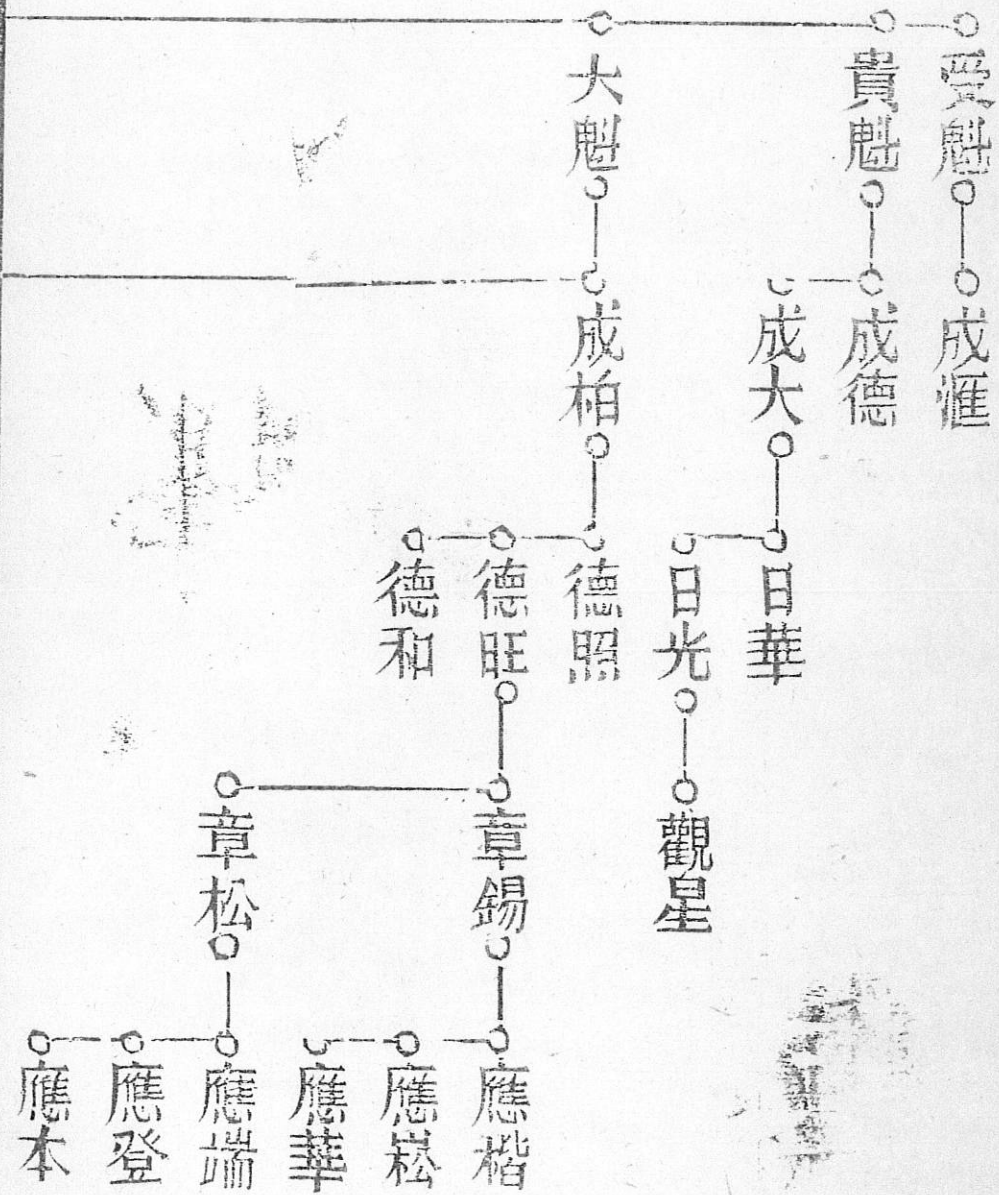 受魁
貴魁
大魁
成滙
成德
成大
成柏
日華
日光
德照
德旺
德和
觀星
章錫
章松
應楷
應崧
應華
應端
應登
應本